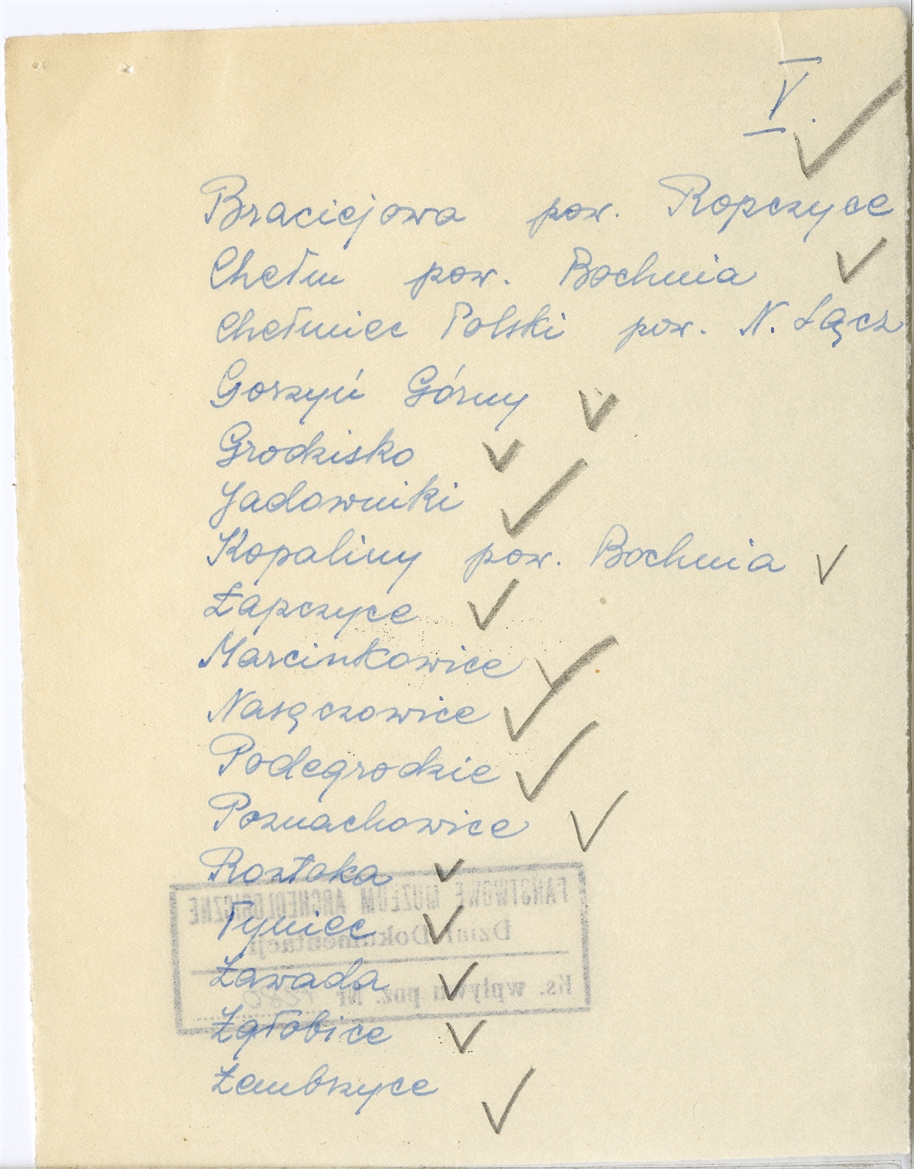 V.
Braciejowa pow. Ropczyce
Chełm pow. Bochnia
Chełmiec Polski pow. N. Sącz
Gorzyń Górny
Grodzisko
Jadowniki
Kopaliny pow. Bochnia
Łapczyce
Marcinkowice
Naszczowice
Podegrodzie
Poznachowice
Roztoka
PAŃSTWOWE MUZEUM ARCHEOLOGICZNE
Tyniec
Dział Dokumentacji
Zawada
Ks. wpływu poz. Nr
Zgłobice